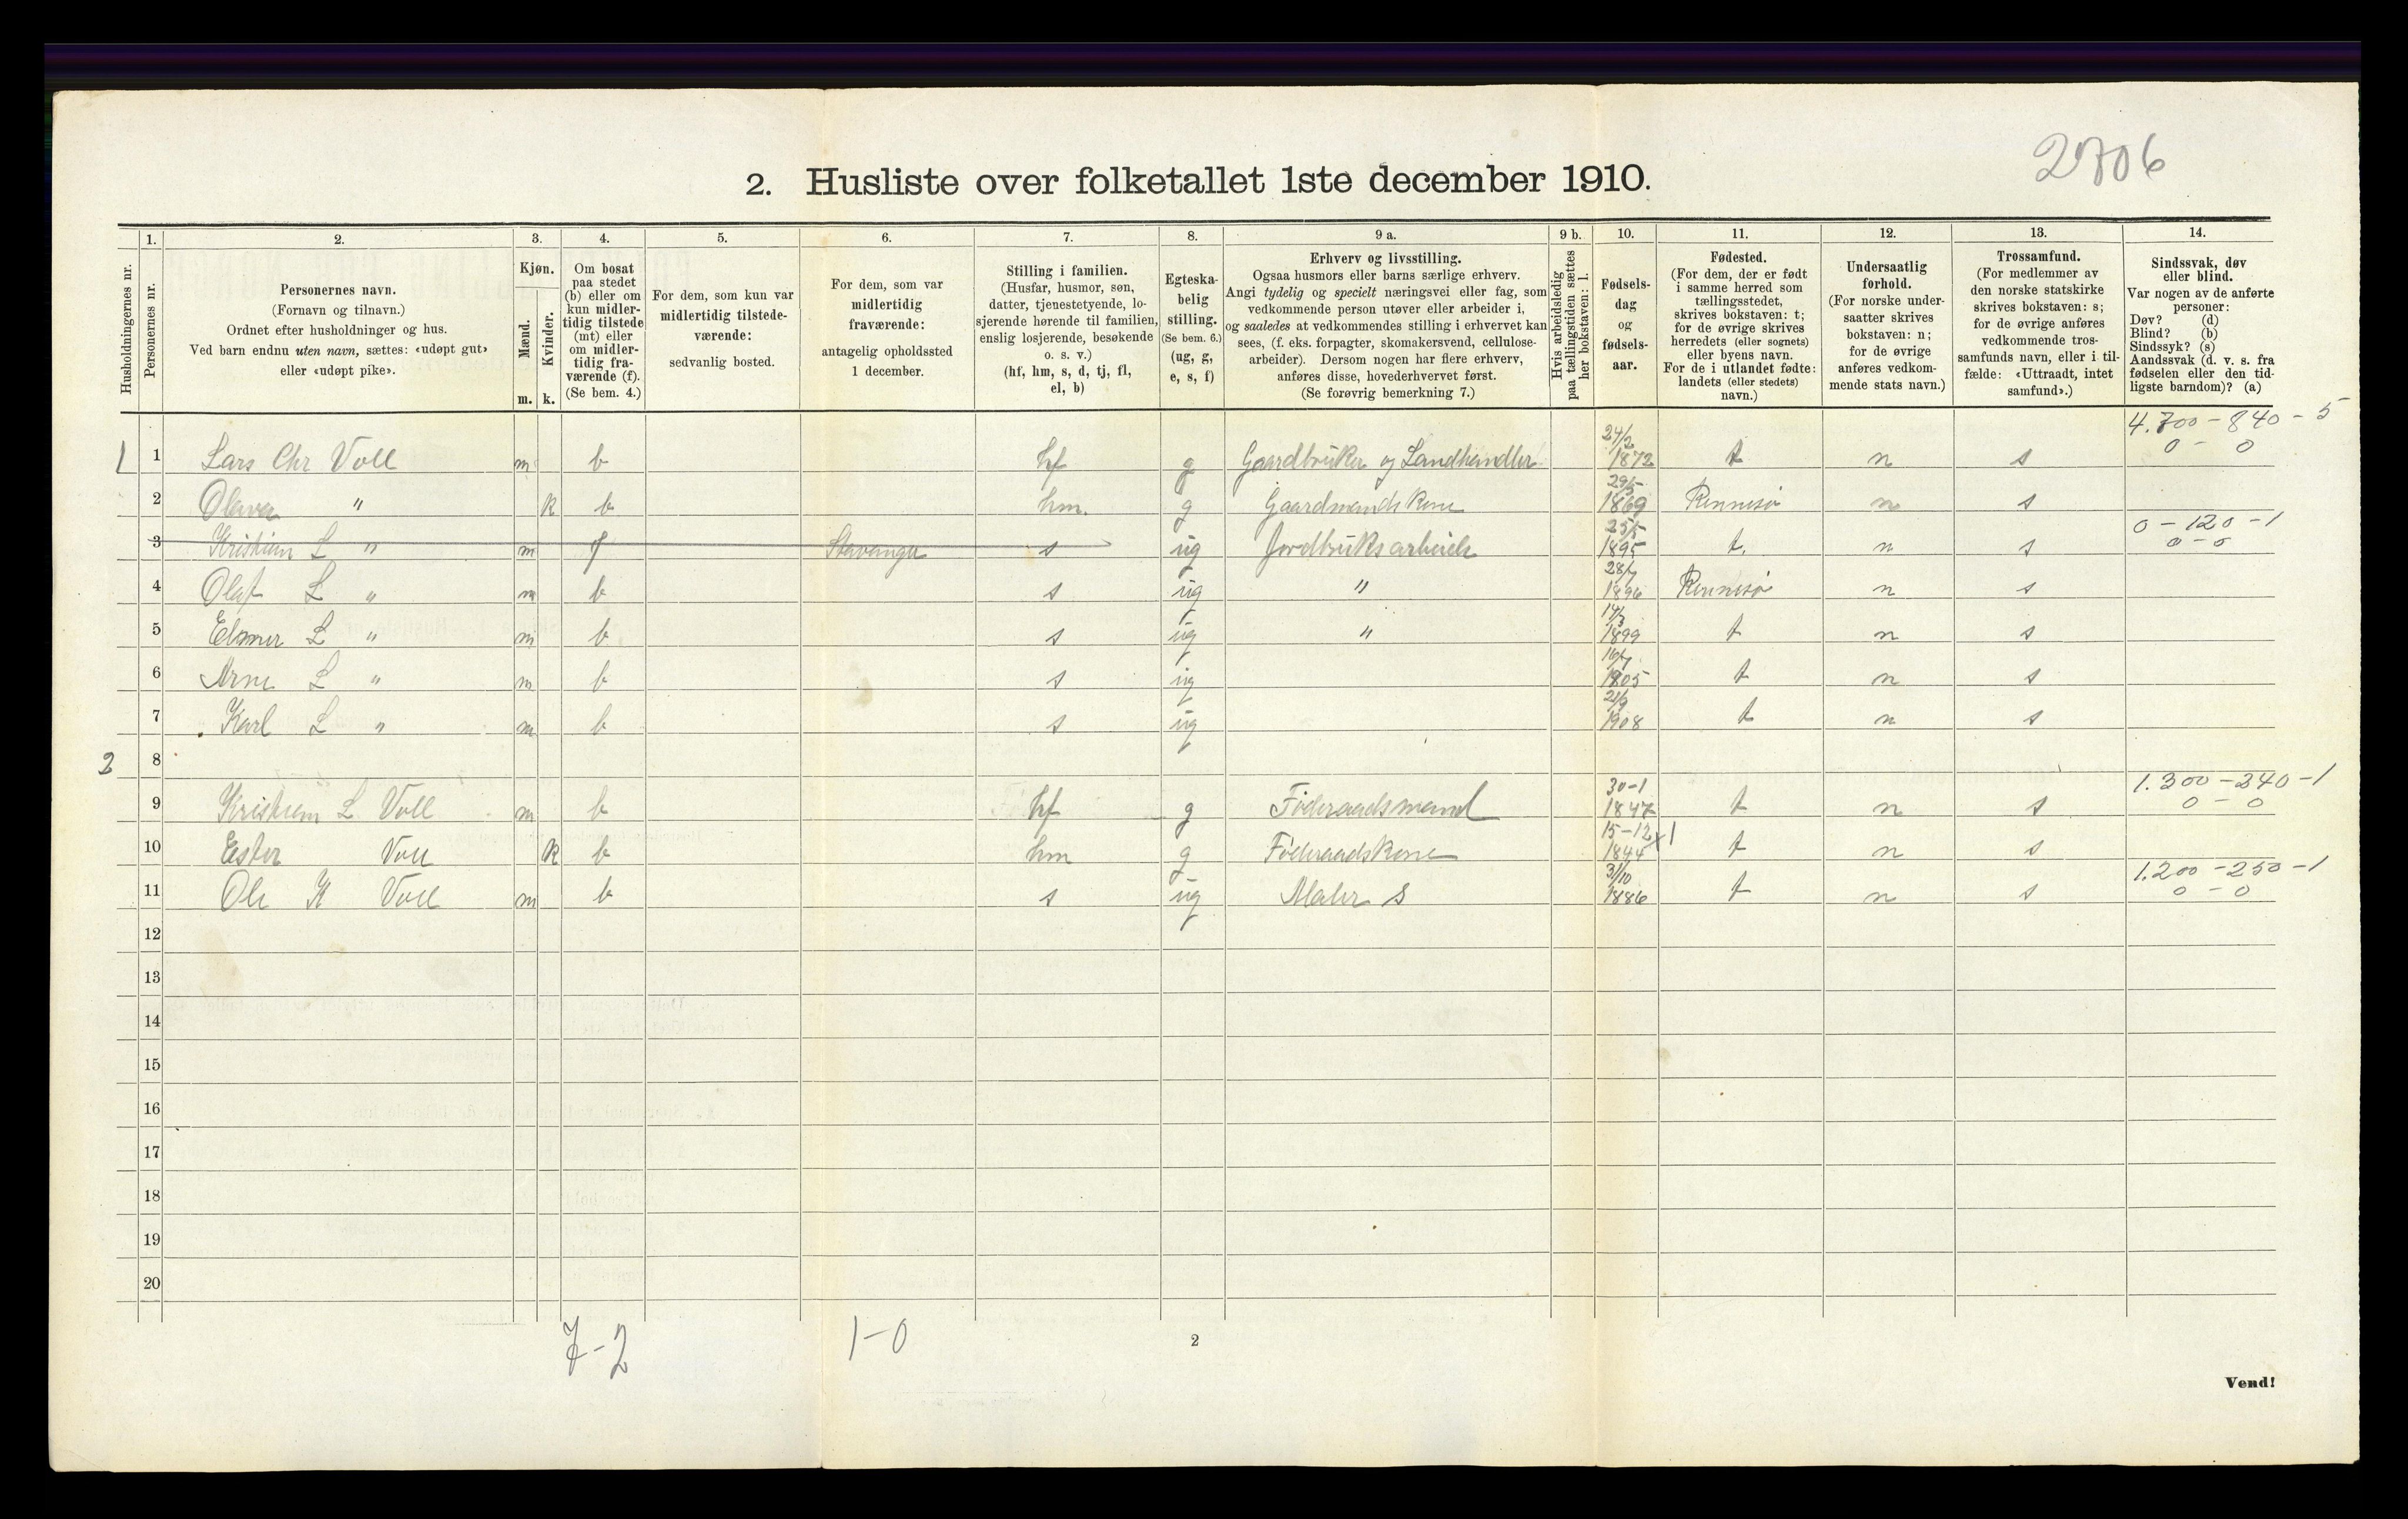 2706
2. Husliste over folketallet 1ste december 1910.
Husholdningernes nr.
1. Personernes nr.
2. Personernes navn.
(Fornavn og tilnavn.)
Ordnet efter husholdninger og hus.
Ved barn endnu uten navn, sættes: «udøpt gut»
eller «udøpt pike».
3. Kjøn.
Mænd. m.
Kvinder. k.
4. Om bosat
paa stedet
(b) eller om
kun midler-
tidig tilstede
(mt) eller
om midler-
tidig fra-
værende (f).
(Se bem. 4.)
5. For dem, som kun var
midlertidig tilstede-
værende:
sedvanlig bosted.
6. For dem, som var
midlertidig
fraværende:
antagelig opholdssted
1 december.
7. Stilling i familien.
(Husfar, husmor, søn,
datter, tjenestetyende, lo-
sjerende hørende til familien,
enslig losjerende, besøkende
o. s. v.)
(hf, hm, s, d, tj, fl,
el, b)
8. Egteska-
belig
stilling.
(Se bem. 6.)
(ug, g,
e, s, f)
9 a. Erhverv og livsstilling.
Ogsaa husmors eller barns særlige erhverv.
Angi tydelig og specielt næringsvei eller fag, som
vedkommende person utøver eller arbeider i,
og saaledes at vedkommendes stilling i erhvervet kan
sees, (f. eks. forpagter, skomakersvend, cellulose-
arbeider). Dersom nogen har flere erhverv,
anføres disse, hovederhvervet først.
(Se forøvrig bemerkning 7.)
9 b. Hvis arbeidsledig
paa tællingstiden sættes
her bokstaven: l.
10. Fødsels-
dag
og
fødsels-
aar.
11. Fødested.
(For dem, der er født
i samme herred som
tællingsstedet,
skrives bokstaven: t;
for de øvrige skrives
herredets (eller sognets)
eller byens navn.
For de i utlandet fødte:
landets (eller stedets)
navn.)
12. Undersaatlig
forhold.
(For norske under-
saatter skrives
bokstaven: n;
for de øvrige
anføres vedkom-
mende stats navn.)
13. Trossamfund.
(For medlemmer av
den norske statskirke
skrives bokstaven: s;
for de øvrige anføres
vedkommende tros-
samfunds navn, eller i til-
fælde: «Uttraadt, intet
samfund».)
14. Sindssvak, døv
eller blind.
Var nogen av de anførte
personer:
Døv? (d)
Blind? (b)
Sindssyk? (s)
Aandssvak (d. v. s. fra
fødselen eller den tid-
ligste barndom)? (a)
1 1 Lars Chr Voll m b hf g Gaardbruker og Landhandler 24/2 1872 t n s 4.700 - 840 - 5 0 - 0
2 Olava " k b hm. g Gaardmandskone 29/5 1869 Rennesø n s
3 Kristian L " m f Stavanger s ug Jordbruksarbeide 25/5 1895 t. n s 0 - 120 - 1 0 - 0
4 Olaf L " m b s ug " 28/7 1896 Rennesø n s
5 Elmer L " m b s ug " 14/3 1899 t n s
6 Arne L " m b s ug 16/7 1905 t n s
7 Karl L " m b s ug 21/9 1908 t n s
2 8
9 Kristian L Voll m b hf g Föderaadsmand 30-1 1847 t n s 1.300 - 240 - 1 0 - 0
10 Ester Voll k b hm g Föderaadskone 15-12 1844 x1 t n s
11 Ole K Voll m b s ug Maler s 3/10 1886 t n s 1.200 - 250 - 1 0 - 0
12
13
14
15
16
17
18
19
20
7-2 1-0
2
Vend!